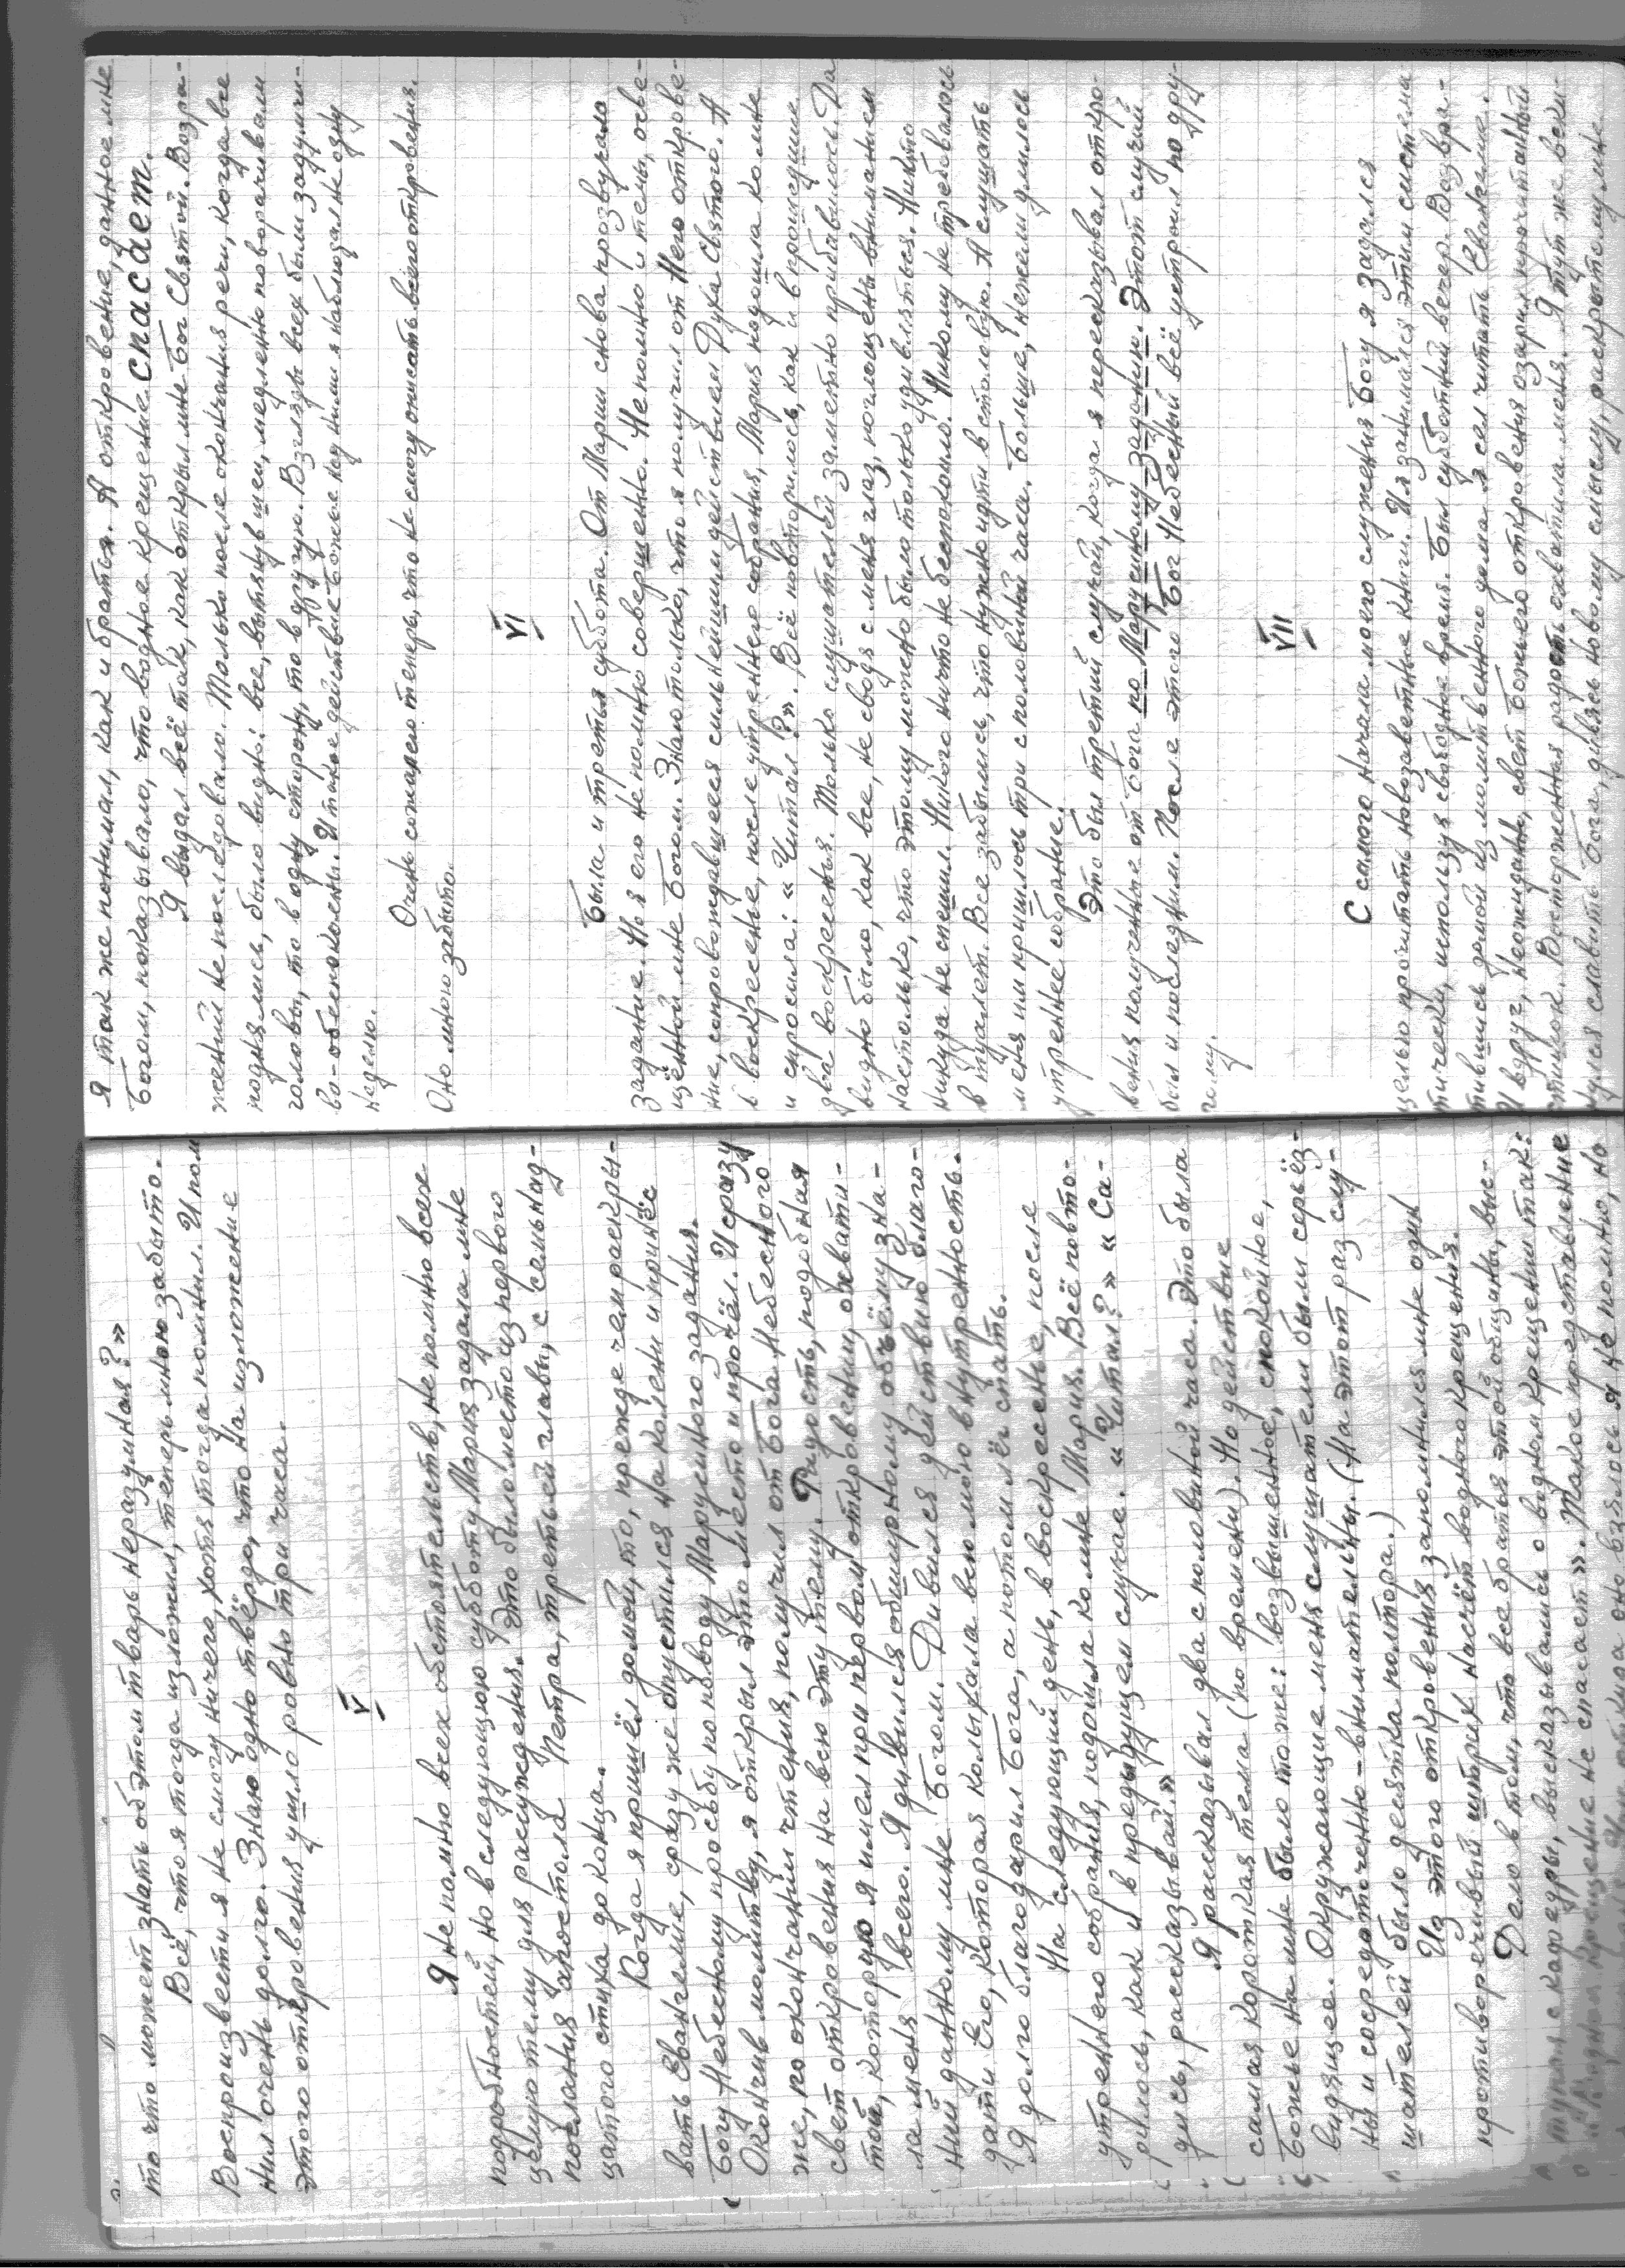 то что может знать об этом тварь неразумная?»
Всё, что я тогда изложил, теперь мною забыто.
Воспроизвести я не смогу ничего, хотя тогда помнил. И пом
нил очень долго. Знаю одно твёрдо, что на изложение
этого откровения ушло ровно три часа.
V
Я не помню всех обстоятельств, не помню всех
подробностей, но в следующую субботу Мария задала мне
целую тему для рассуждения. Это было место из первого
послания апостола Петра, третьей главы, с семьнад-
цатого стиха до конца.
Когда я пришёл домой, то, прежде чем раскры-
вать Евангелие, сразу же опустился на колени и принёс
Богу Небесному просьбу по поводу Марусиного задания.
Окончив молитву, я открыл это место и прочёл. И сразу
же, по окончании чтения, получил от Бога Небесного
свет откровения на всю эту тему. Радость, подобная
той, которую я имел при первом откровении, охвати-
ла меня всего. Я дивился обширному объёму зна-
ний данному мне Богом. Дивился действию благо-
дати Его, которая колыхала всю мою внутренность.
Я долго благодарил Бога, а потом лёг спать.
На следующий день, в воскресенье, после
утреннего собрания, подошла ко мне Мария. Всё повто-
рилось, как и в предыдущем случае. «Читал?» «Са-
дись, рассказывай.»
Я рассказывал два с половиной часа. Это была
самая короткая тема (по времени). Но действие
Божье на мне было то же: возвышенное, спокойное,
видящее. Окружающие меня слушатели были серьёз-
ны и сосредоточенно-внимательны. (На этот раз слу-
шателей было десятка полтора.)
Из этого откровения запомнился мне один
противоречивый штрих насчёт водного крещения.
Дело в том, что все братья этой общины, выс-
тупая с кафедры, высказывались о водном крещении так:
«Водное крещение не спасает». Такое представление
оно взялось я не помню, но
Я так же понимал, как и братья. А откровение, данное мне
Богом, показывало, что водное крещение спасает.
Я выдал всё так, как открыл мне Бог Святой. Возра-
жений не последовало. Только после окончания речи, когда все
поднялись, было видно: все, вытянув шеи, медленно поворачивали
головы, то в одну сторону, то в другую. Взгляды всех были задумчи-
во-обеспокоены. И такое действие Божье над ними я наблюдал не одну
неделю.
Очень сожалею теперь, что не смогу описать всего откровения.
Оно мною забыто.
VI
Была и третья суббота. От Марии снова прозвучало
задание. Но я его не помню совершенно. Не помню и темы, осве-
щённой мне Богом. Знаю только, что я получил от Него открове-
ние, сопровождавшееся сильнейшим действием Духа Святого. А
в воскресенье, после утреннего собрания, Мария подошла ко мне
и спросила: «Читал?». Всё повторилось, как и в прошедшие
два воскресенья. Только слушателей заметно прибавилось. Да
видно было, как все, не сводя с меня глаз, поглощены вниманием
настолько, что этому можно было только удивляться. Никто
никуда не спешил. Никого ничто не беспокоило. Никому не требовалось
в туалет. Все забылись, что нужно идти в столовую. А слушать
меня им пришлось три с половиной часа. Больше, нежели длилось
утреннее собрание.
Это был третий случай, когда я пересказывал откро-
вения полученные от Бога по Марусиному заданию. Этот случай
был и последним. После этого Бог Небесный всё устроил по дру-
гому.
VII
С самого начала моего служения Богу я задался
целью прочитать новозаветные книги. И я занимался этим система-
тически, используя свободное время. Был субботний вечер. Возвра-
тившись домой из молитвенного дома я сел читать Евангелие.
И вдруг, неожиданно, свет Божьего откровения озарил прочитанный
стишок. Восторженная радость охватила меня. Я тут же вски-
нулся славить Бога, дивясь новому смыслу, раскрытому мне